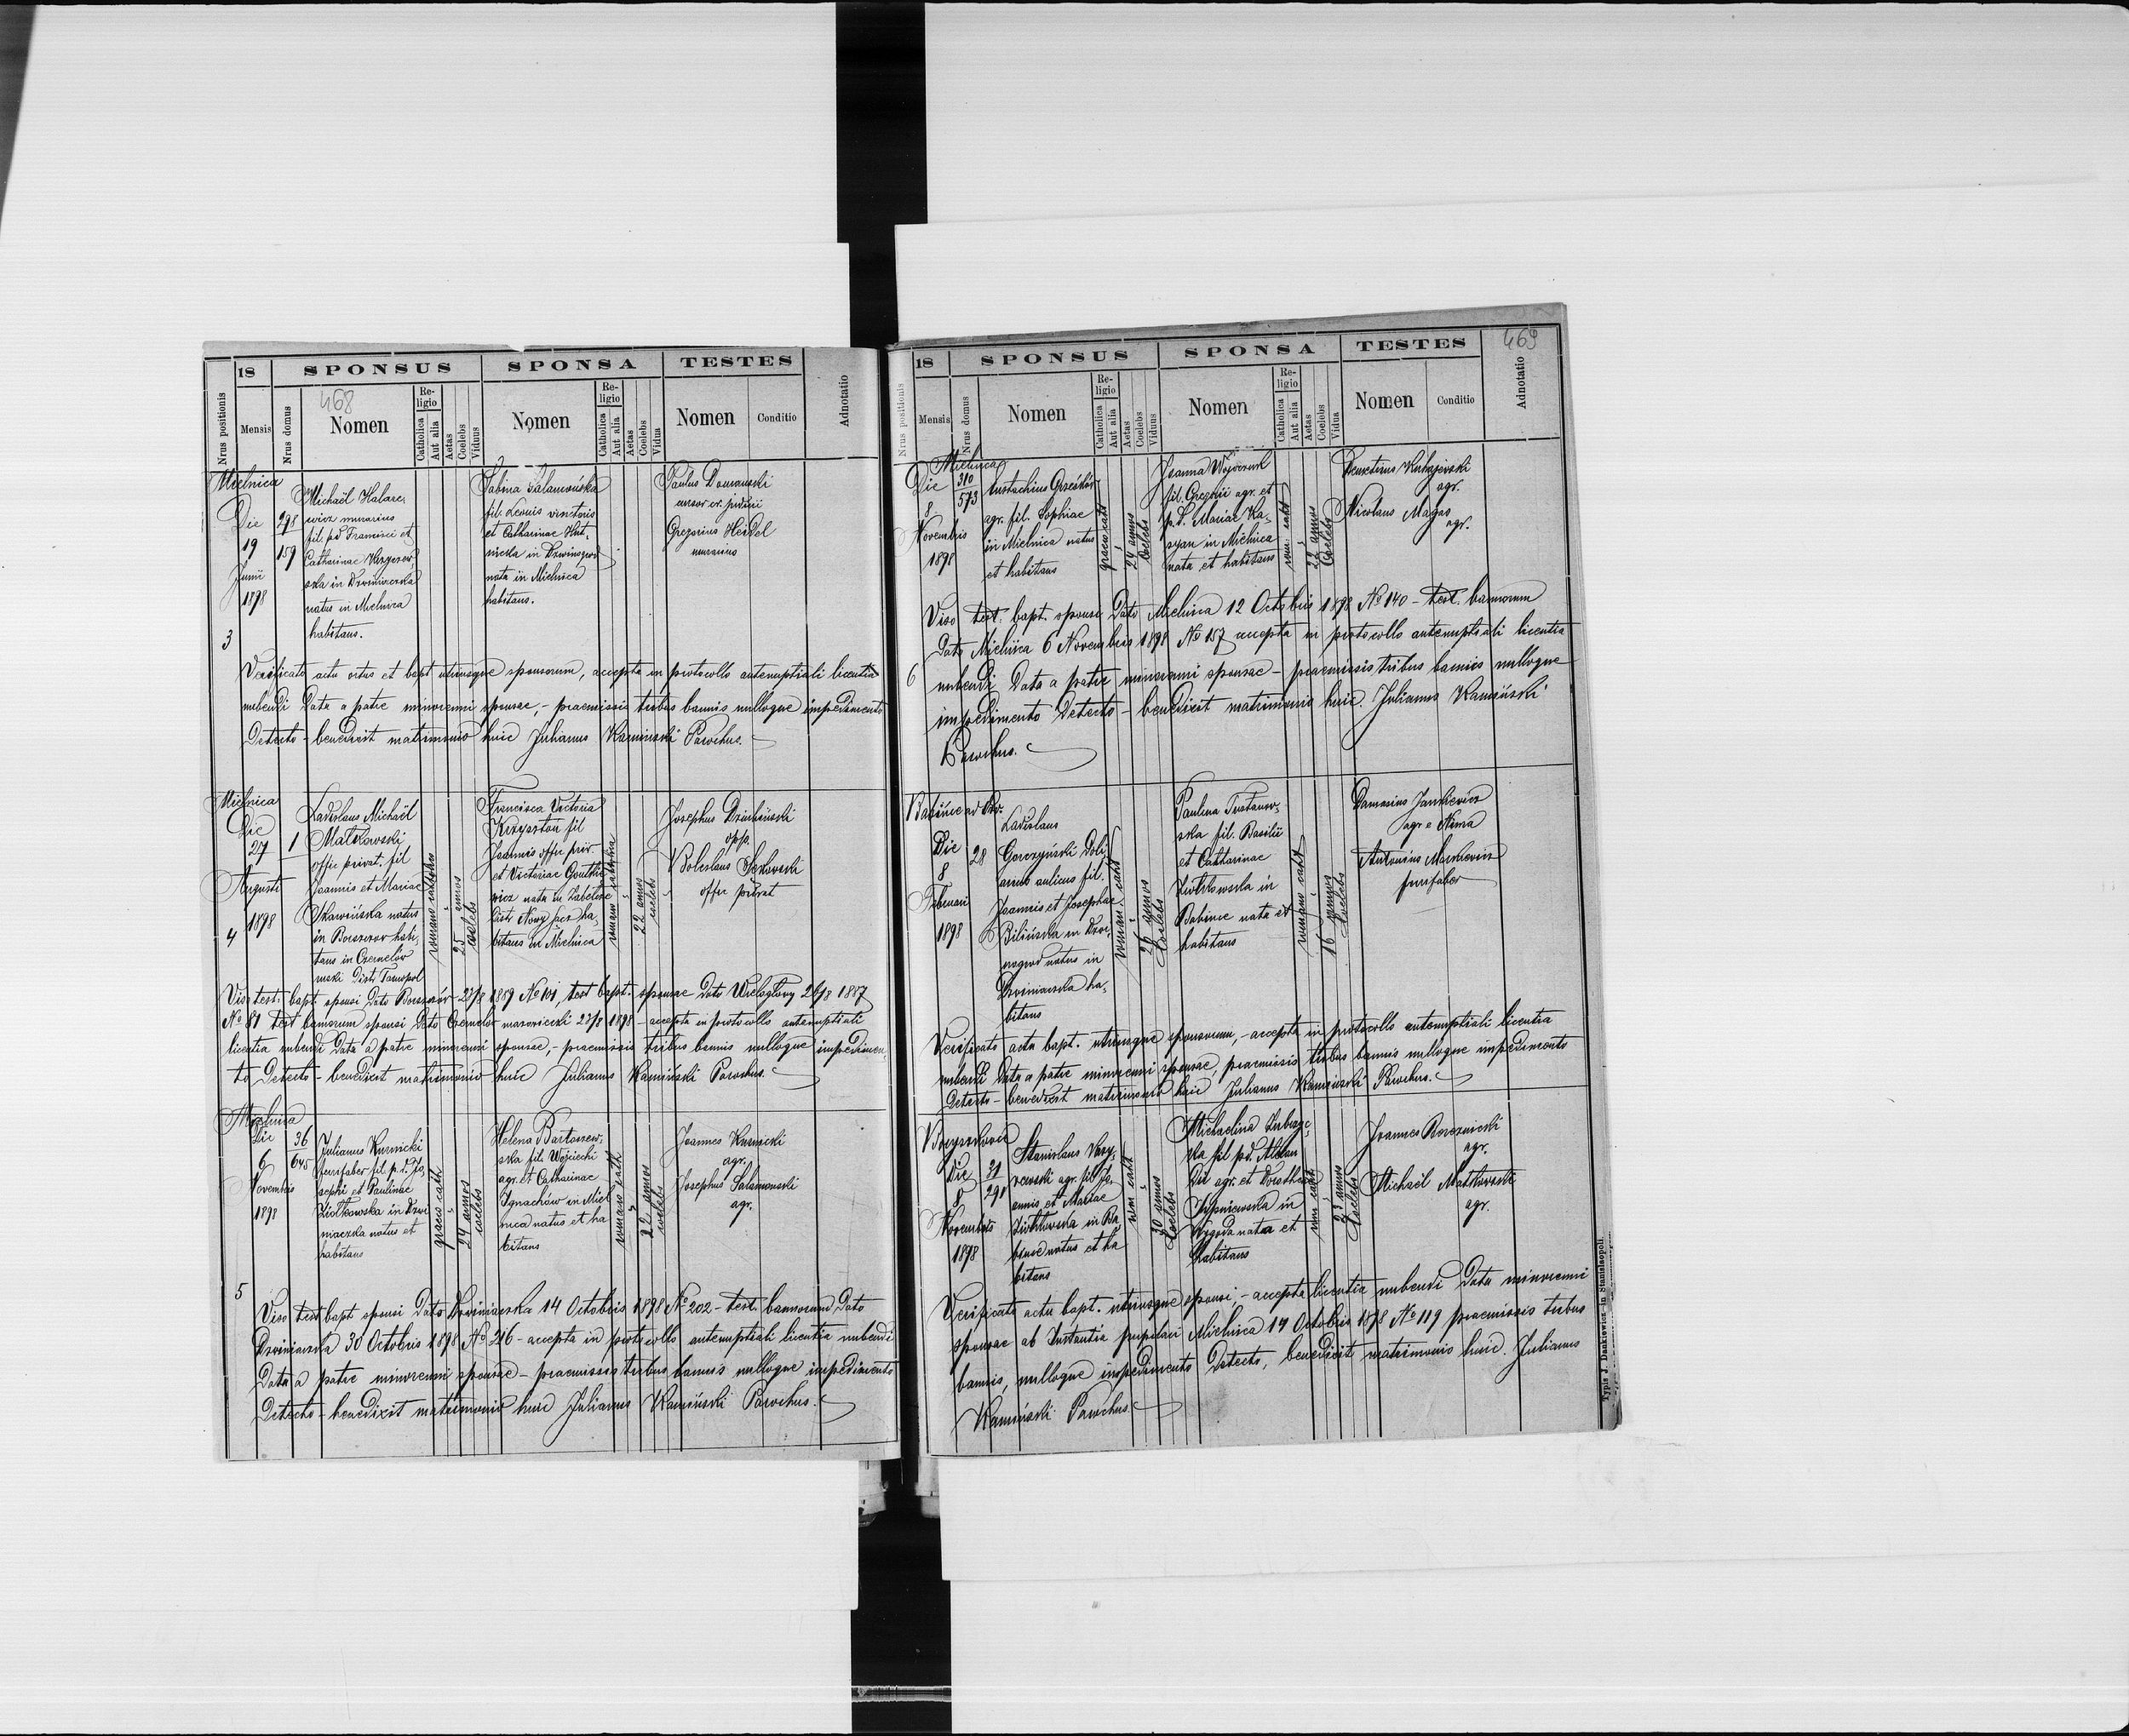 468
18
SPONSUS
SPONSA
TESTES
Nrus positionis
Mensis
Nrus domus
Nomen
Religio
Catholica
Aut alia
Aetas
Coelebs
Viduus
Nomen
Religio
Catholica
Aut alia
Aetas
Coelebs
Vidua
Nomen
Conditio
Adnotatio
Mielnica
Die
19
Junii
1898
3
298
159
Michaël
murarius
fil. pd Francisci et
Catharinae
natus in Mielnica
habitans.
Sabina
fil. Leonis
et Catharinae Hut-
nicka in
nata in Mielnica
habitans.
Paulus
Gregorius Heidel
murarius
Verificato actu ortus et bapt utriusque sponsorum, accepta in protocollo antenuptiali licentia
nubendi Data a patre minorenni sponsae,- praemissis tribus bannis nulloque impedimento
Detecto - benedixit matrimonio huic Julianus Kamiński Parochus.
Mielnica
Die
27
Augusti
1898
4
1
Ladislaus Michaël
Malkowski
offic privat. fil
Joannis et Mariae
natus
in Borszczow habi-
tans in Czernelów
Distr Tarnopol
romano catholica
25 annos
coelebs
Francisca Victoria
Krzysztoń fil
Joannis offic priv
et Victoriae
nata in
Distr Nowy Sącz ha-
bitans in Mielnica
romano catholica
22 annos
coelebs
Josephus
opp.
Boleslaus
offic privat
Viso test. bapt. sponsi Dato Borszczów 27/8 1889 No 101, test bapt. sponsae Dato Wielogłowy 26/8 1887
No 81 test bannorum sponsi Dato Czernelów mazowiecki 27/8 1898 - accepta in protocollo antenuptiali
licentia nubendi Data a patre minorenni sponsae,- praemissis tribus bannis nulloque impedimen-
to Detecto - benedixit matrimonio huic Julianus Kamiński Parochus.
Mielnica
Die
6
Novembris
1898
5
36
645
Julianus Kurnicki
ferrifaber fil. p. d. Jo-
sephi et Paulinae
Ziolkowska in Dzwi
niaczka natus et
habitans
graeco cath
24 annos
coelebs
Helena Bartoszew-
ska fil. Wojciechi
agr. et Catharinae
Ignachów in Miel
nica natus et ha
bitans
romano cath
22 annos
coelebs
Joannes Kurnicki
agr.
Josephus Salamonski
agr.
Viso test bapt sponsi Dato Dzwiniaczka 14 Octobris 1898 No 202 - test. bannorum Dato
Dzwiniaczka 30 Octobris 1898 No 216 - accepta in protocollo antenuptiali licentia nubendi
Data a patre minorenni sponsae - praemissis tribus bannis nulloque impedimento
Detecto - benedixit matrimonio huic Julianus Kamiński Parochus.
469
18
SPONSUS
SPONSA
TESTES
Nrus positionis
Mensis
Nrus domus
Nomen
Religio
Catholica
Aut alia
Aetas
Coelebs
Viduus
Nomen
Religio
Catholica
Aut alia
Aetas
Coelebs
Vidua
Nomen
Conditio
Adnotatio
Mielnica
Die
8
Novembris
1898
6
310
573
Eustachius
agr. fil. Sophiae
in Mielnica natus
et habitans
graeco cath
24 annos
Coelebs
Joanna Wojtczuk
fil. Gregorii agr. et
p.d. Mariae Ka-
in Mielnica
nata et habitans
rom. cath
22 annos
Coelebs
Demetrius
agr.
Nicolaus Magas
agr.
Viso test. bapt. sponsi Dato Mielnica 12 Octobris 1898 No 140 - test. bannorum
Dato Mielnica 6 Novembris 1898 No 157 accepta in protocollo antenuptiali licentia
nubendi Data a patre minorenni sponsae - praemissis tribus bannis nulloque
impedimento Detecto - benedixit matrimonio huic. Julianus Kamiński
Parochus.
Babińce ad Dzw.
Die
8
Februari
1898
28
Ladislaus
Gorczyński Doli-
arius aulicus fil.
Joannis et Josephae
Bilińska in Dzwi-
nogrod natus in
Dzwiniaczka ha-
bitans
roman. cath
26 annos
Coelebs
Paulina Tustanow-
ska fil. Basilii
et Catharinae
Ziołkowska in
Babince nata et
habitans
romano cath
16 annos
Coelebs
Damasius Jankiewicz
agr e Niwra
Antonius Markiewicz
ferrifaber
Verificato actu bapt. utriusque sponsorum,- accepta in protocollo antenuptiali licentia
nubendi Data a patre minorenni sponsae, praemissis tribus bannis nulloque impedimento
Detecto - benedixit matrimonio huic Julianus Kamiński Parochus.
Die
8
Novembris
1898
31
291
Stanislaus
agr. fil. Jo-
annis et Mariae
Ziółkowska in Ba
bince natus et ha
bitans
rom cath
30 annos
Coelebs
Michaelina
ska fil pd.
agr. et Dorotheae
in
Wygoda nata et
habitans
rom cath
23 annos
Coelebs
Joannes
agr.
Michaël Matkowski
agr.
Verificato actu bapt. utriusque sponsi - accepta licentia nubendi Data minorenni
sponsae ab Instantia pupilari Mielnica 14 Octobris 1898 No 119 praemissis tribus
bannis, nulloque impedimento Detecto, benedixit matrimonio huic. Julianus
Kamiński Parochus.
Typis J. Dankiewicz in Stanislaopoli